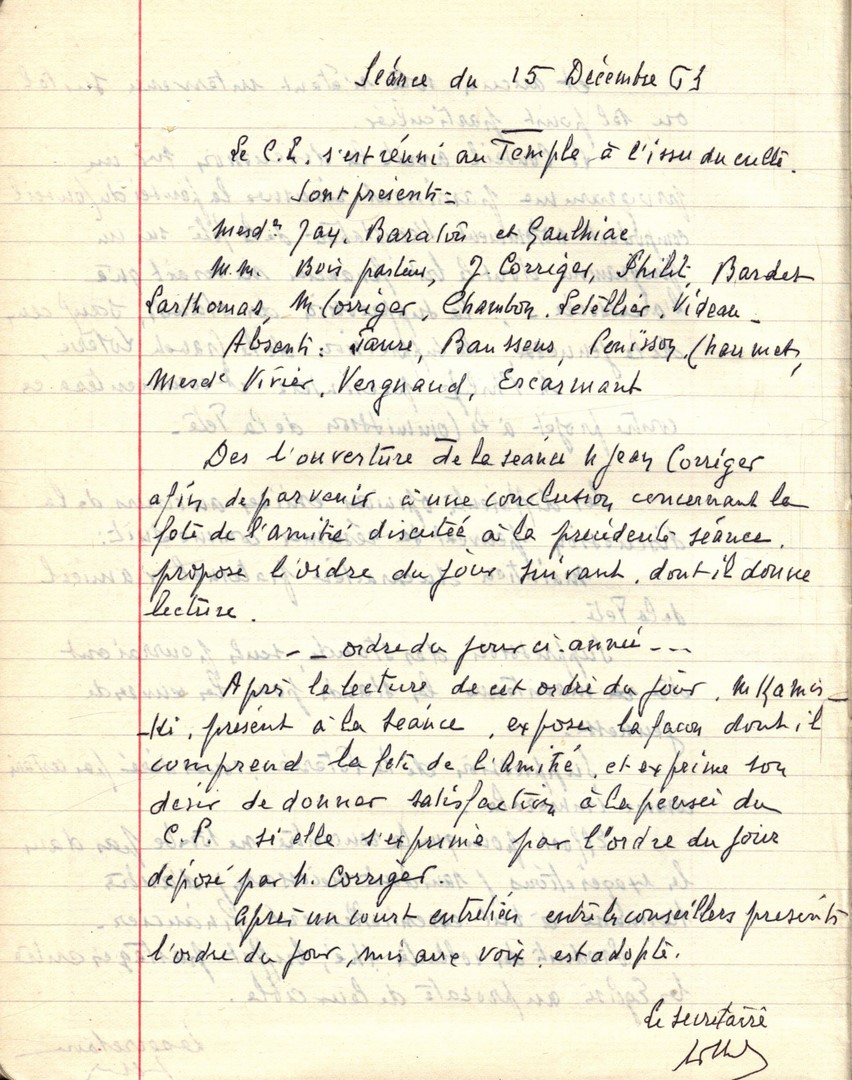 Séance du 15 Décembre 63
Le C.P. s'est réuni au Temple à l'issu du culte.
Sont présents =
Mesd.es Jay, Baraton et Gaulhiac
M.M. Bois pasteur, J. Corriger, Philit, Bardet
Larthomas, M Corriger, Chambon, Letellier, Videau -
Absents : Faure, Baussens, Chaumet,
Mesd.e Vivier, Vergnaud, Escarmant
Des l'ouverture de la séance M Jean Corriger
afin de parvenir à une conclusion concernant la
fête de l'amitié discutée à la précédente séance.
propose l'ordre du jour suivant, dont il donne
lecture.
- - ordre du jour ci-annéé - - -
Après la lecture de cet ordre du jour, M Kamis-
-Ki, présent à la séance, expose la façon dont il
comprend la fête de l'Amitié, et exprime son
desir de donner satisfaction à la pensée du
C.P. si elle s'exprime par l'ordre du jour
déposé par M. Corriger.
Après un court entretien entre les conseillers presents
l'ordre du jour, mis aux voix, est adopté.
Le secretaire